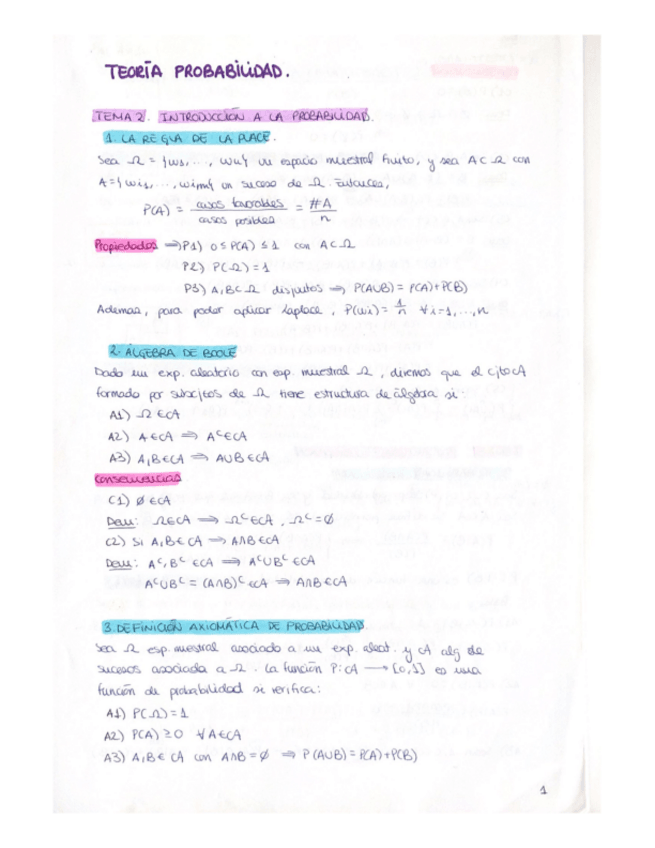 TEORÍA PROBABILIDAD.
TEMA 2. INTRODUCCIÓN A LA PROBABILIDAD.
1. LA REGLA DE LA PLACE.
Sea Ω = {ω1, ..., ωn} un espacio muestral finito, y sea A ⊂ Ω con
A = {ωi1, ..., ωim} un suceso de Ω. Entonces,
P(A) = casos favorables / casos posibles = #A / n
Propiedades ⟹ P1) 0 ≤ P(A) ≤ 1 con A ⊂ Ω
P2) P(Ω) = 1
P3) A, B ⊂ Ω disjuntos ⟹ P(A∪B) = P(A)+P(B)
Además, para poder aplicar Laplace, P(ωi) = 1/n ∀ i=1,...,n
2. ÁLGEBRA DE BOOLE
Dado un exp. aleatorio con esp. muestral Ω, diremos que el cjto A
formado por subcjtos de Ω tiene estructura de álgebra si:
A1) Ω ∈ A
A2) A ∈ A ⟹ Aᶜ ∈ A
A3) A, B ∈ A ⟹ A∪B ∈ A
Consecuencias
C1) ∅ ∈ A
Dem: Ω ∈ A ⟹ Ωᶜ ∈ A, Ωᶜ = ∅
C2) Si A, B ∈ A ⟹ A∩B ∈ A
Dem: Aᶜ, Bᶜ ∈ A ⟹ Aᶜ∪Bᶜ ∈ A
Aᶜ∪Bᶜ = (A∩B)ᶜ ∈ A ⟹ A∩B ∈ A
3. DEFINICIÓN AXIOMÁTICA DE PROBABILIDAD
Sea Ω esp. muestral asociado a un exp. aleat. y A alg de
sucesos asociada a Ω. La función P: A ⟶ [0,1] es una
función de probabilidad si verifica:
A1) P(Ω) = 1
A2) P(A) ≥ 0 ∀ A ∈ A
A3) A, B ∈ A con A∩B = ∅ ⟹ P(A∪B) = P(A)+P(B)
1